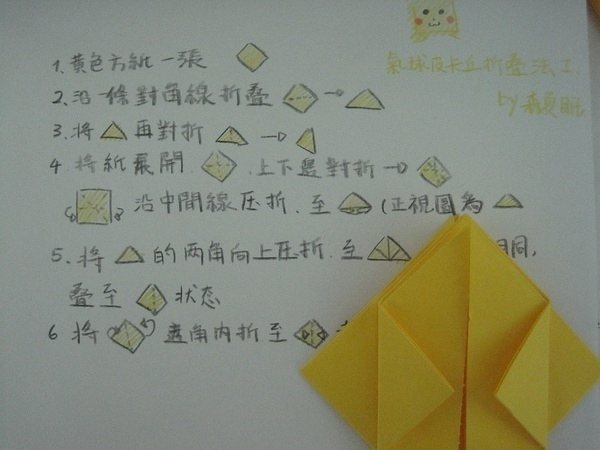 氣球皮卡丘折疊法1.
1. 黃色方紙一張
2. 沿一條對角線折疊
by 森夏眠
3. 將 再對折
4 將紙展開. . 上下邊對折
沿中間線压折. 至 (正視圖為
5. 將 的两角向上压折. 至 同,
疊至 状态
6 將 邊角內折至